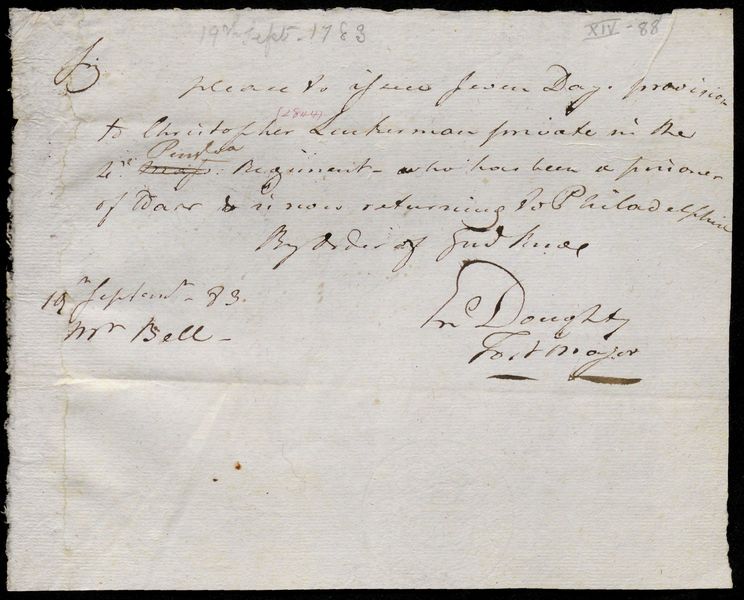 19th Sept. 1783
XIV-88
Sir
please to issue seven Days provision
(2844)
to Christopher Linkerman private in the
Pensa
4th Mass: Regiment - who has been a prisoner
of Warr & is now returning to Philadelphia
By Order of Genl Knox
19th Septemr - 83.
Mr Bell -
Jn Doughty
Fort Major